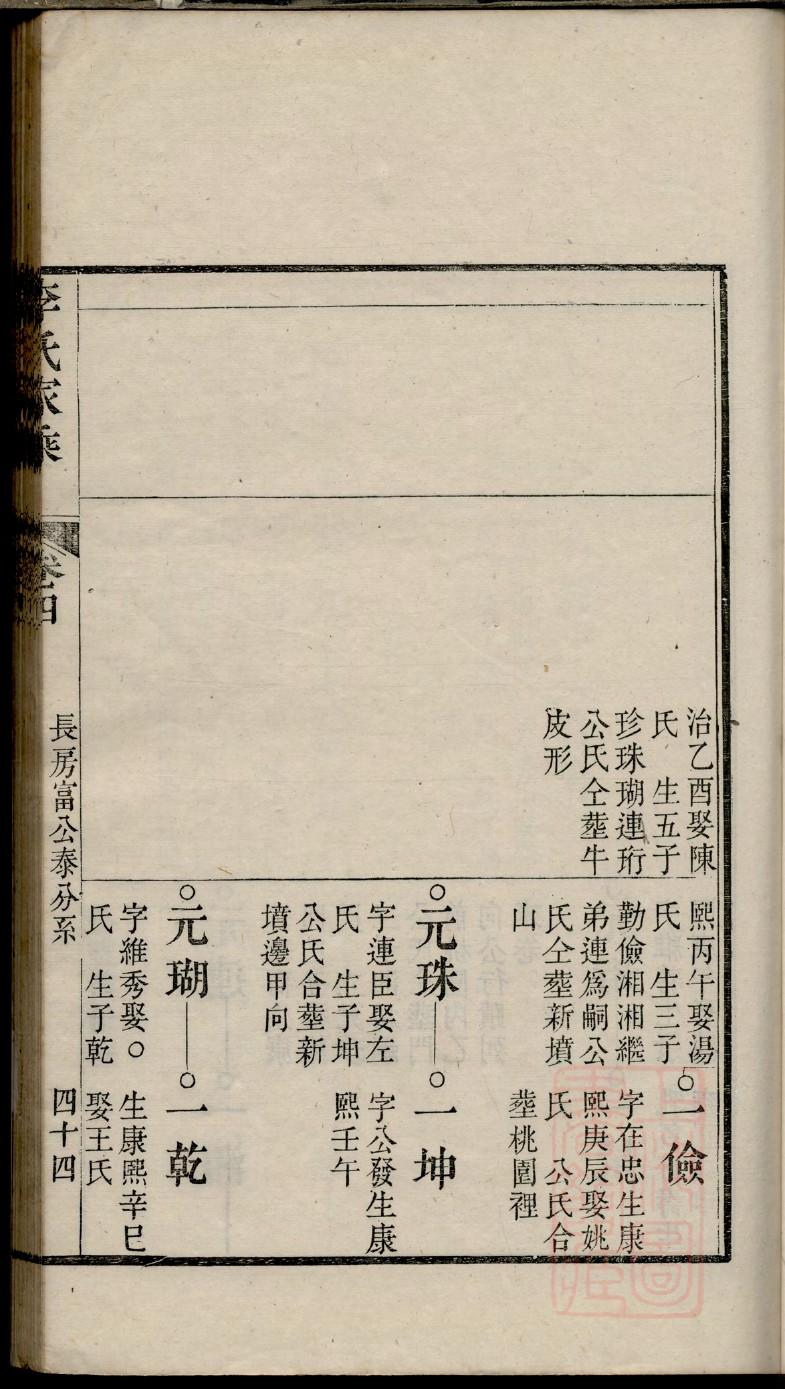 治乙酉娶陳
氏　生五子
珍珠瑚連珩
公氏仝塟牛
皮形
熙丙午娶湯
氏　生三子
勤儉湘湘繼
弟連爲嗣公
氏仝塟新墳
山
○一儉
字在忠生康
熙庚辰娶姚
氏　公氏合
塟桃園裡
○元珠
字連臣娶左
氏　生子坤
公氏合塟新
墳邊甲向
○一坤
字公發生康
熙壬午
○元瑚
字維秀娶○
氏　生子乾
○一乾
生康熙辛巳
娶王氏
李氏家乘
卷四
長房富公泰分系
四十四